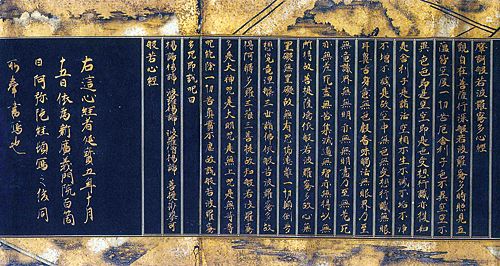 摩訶般若波羅蜜多心經
觀自在菩薩行深般若波羅蜜多時照見五
蘊皆空度一切苦厄舍利子色不異空空不
異色色即是空空即是色受想行識亦復如
是舍利子是諸法空相不生不滅不垢不淨
不增不減是故空中無色無受想行識無眼
耳鼻舌身意無色聲香味觸法無眼界乃至
無意識界無無明亦無無明盡乃至無老死
亦無老死盡無苦集滅道無智亦無得以無
所得故菩提薩埵依般若波羅蜜多故心無
罣礙無罣礙故無有恐怖遠離一切顛倒夢
想究竟涅槃三世諸佛依般若波羅蜜多故
得阿耨多羅三藐三菩提故知般若波羅蜜
多是大神咒是大明咒是無上咒是無等等
咒能除一切苦真實不虛故說般若波羅蜜
多咒即說咒曰
揭諦揭諦 波羅揭諦 波羅僧揭諦 菩提莎婆訶
般若心經
右這心經者延寶五年十月
十五日依為新廣義門院百箇
日阿弥陀經頓寫之後同
書寫也